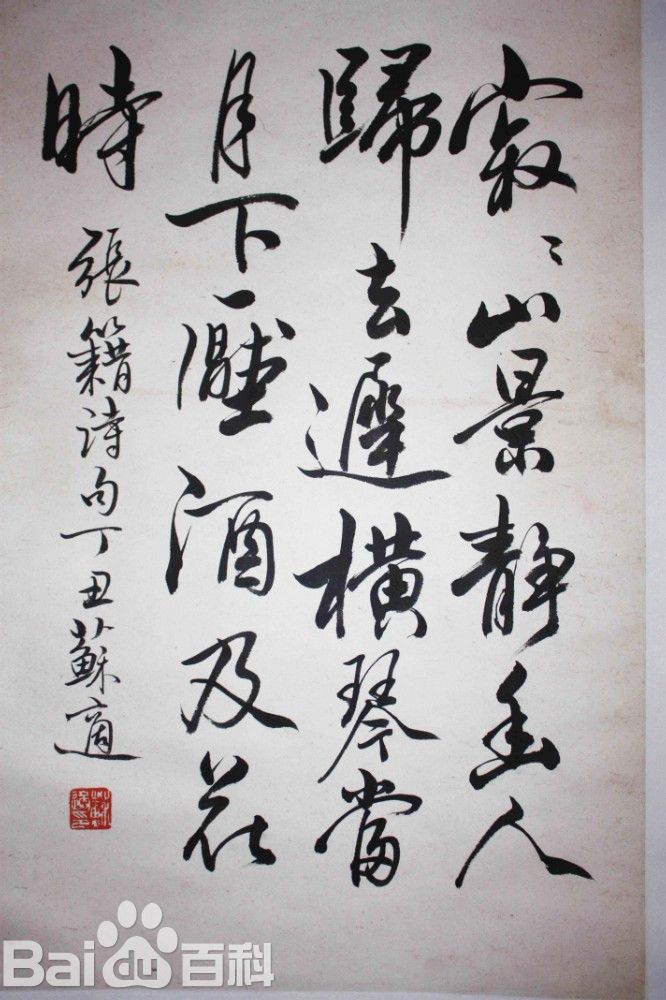 寂〻山景静幽人
歸去遲横琴當
月下壓酒及花
時
張籍诗句丁丑蘇適
Bai百科